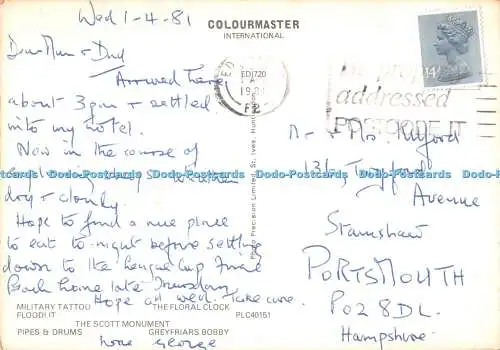 Wed 1-4-81
Dear Mum & Dad
Arrived here
about 3pm & settled
into my hotel.
Now in the course of
dry & cloudy.
Hope to find a nice place
to eat to-night before settling
down to the League Cup Final
Back home late Thursday
Hope all well. Take care.
love George
COLOURMASTER
INTERNATIONAL
1981
addressed
POSTCODE IT
Mr & Mrs
Avenue
Stamshaw
PORTSMOUTH
PO2 8DL.
Hampshire.
MILITARY TATTOO THE FLORAL CLOCK PLC40151
FLOODLIT
THE SCOTT MONUMENT
PIPES & DRUMS GREYFRIARS BOBBY
Photo Precision Limited, St. Ives, Huntingdon
Dodo-Postcards Dodo-Postcards Dodo-Postcards Dodo-Postcards